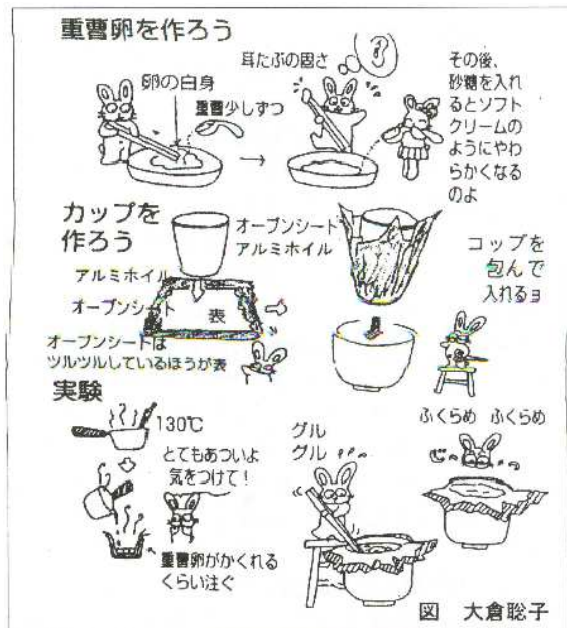 重曹卵を作ろう
卵の白身
重曹少しずつ
→
耳たぶの固さ
その後、
砂糖を入れ
るとソフト
クリームの
ようにやわ
らかくなる
のよ
カップを
作ろう
オーブンシート
アルミホイル
アルミホイル
オーブンシート
表
オーブンシートは
ツルツルしているほうが表
コップを
包んで
入れるョ
実験
130℃
とてもあついよ
気をつけて!
重曹卵がかくれる
くらい注ぐ
グル
グル
ふくらめ ふくらめ
じ〜っ
図 大倉聡子